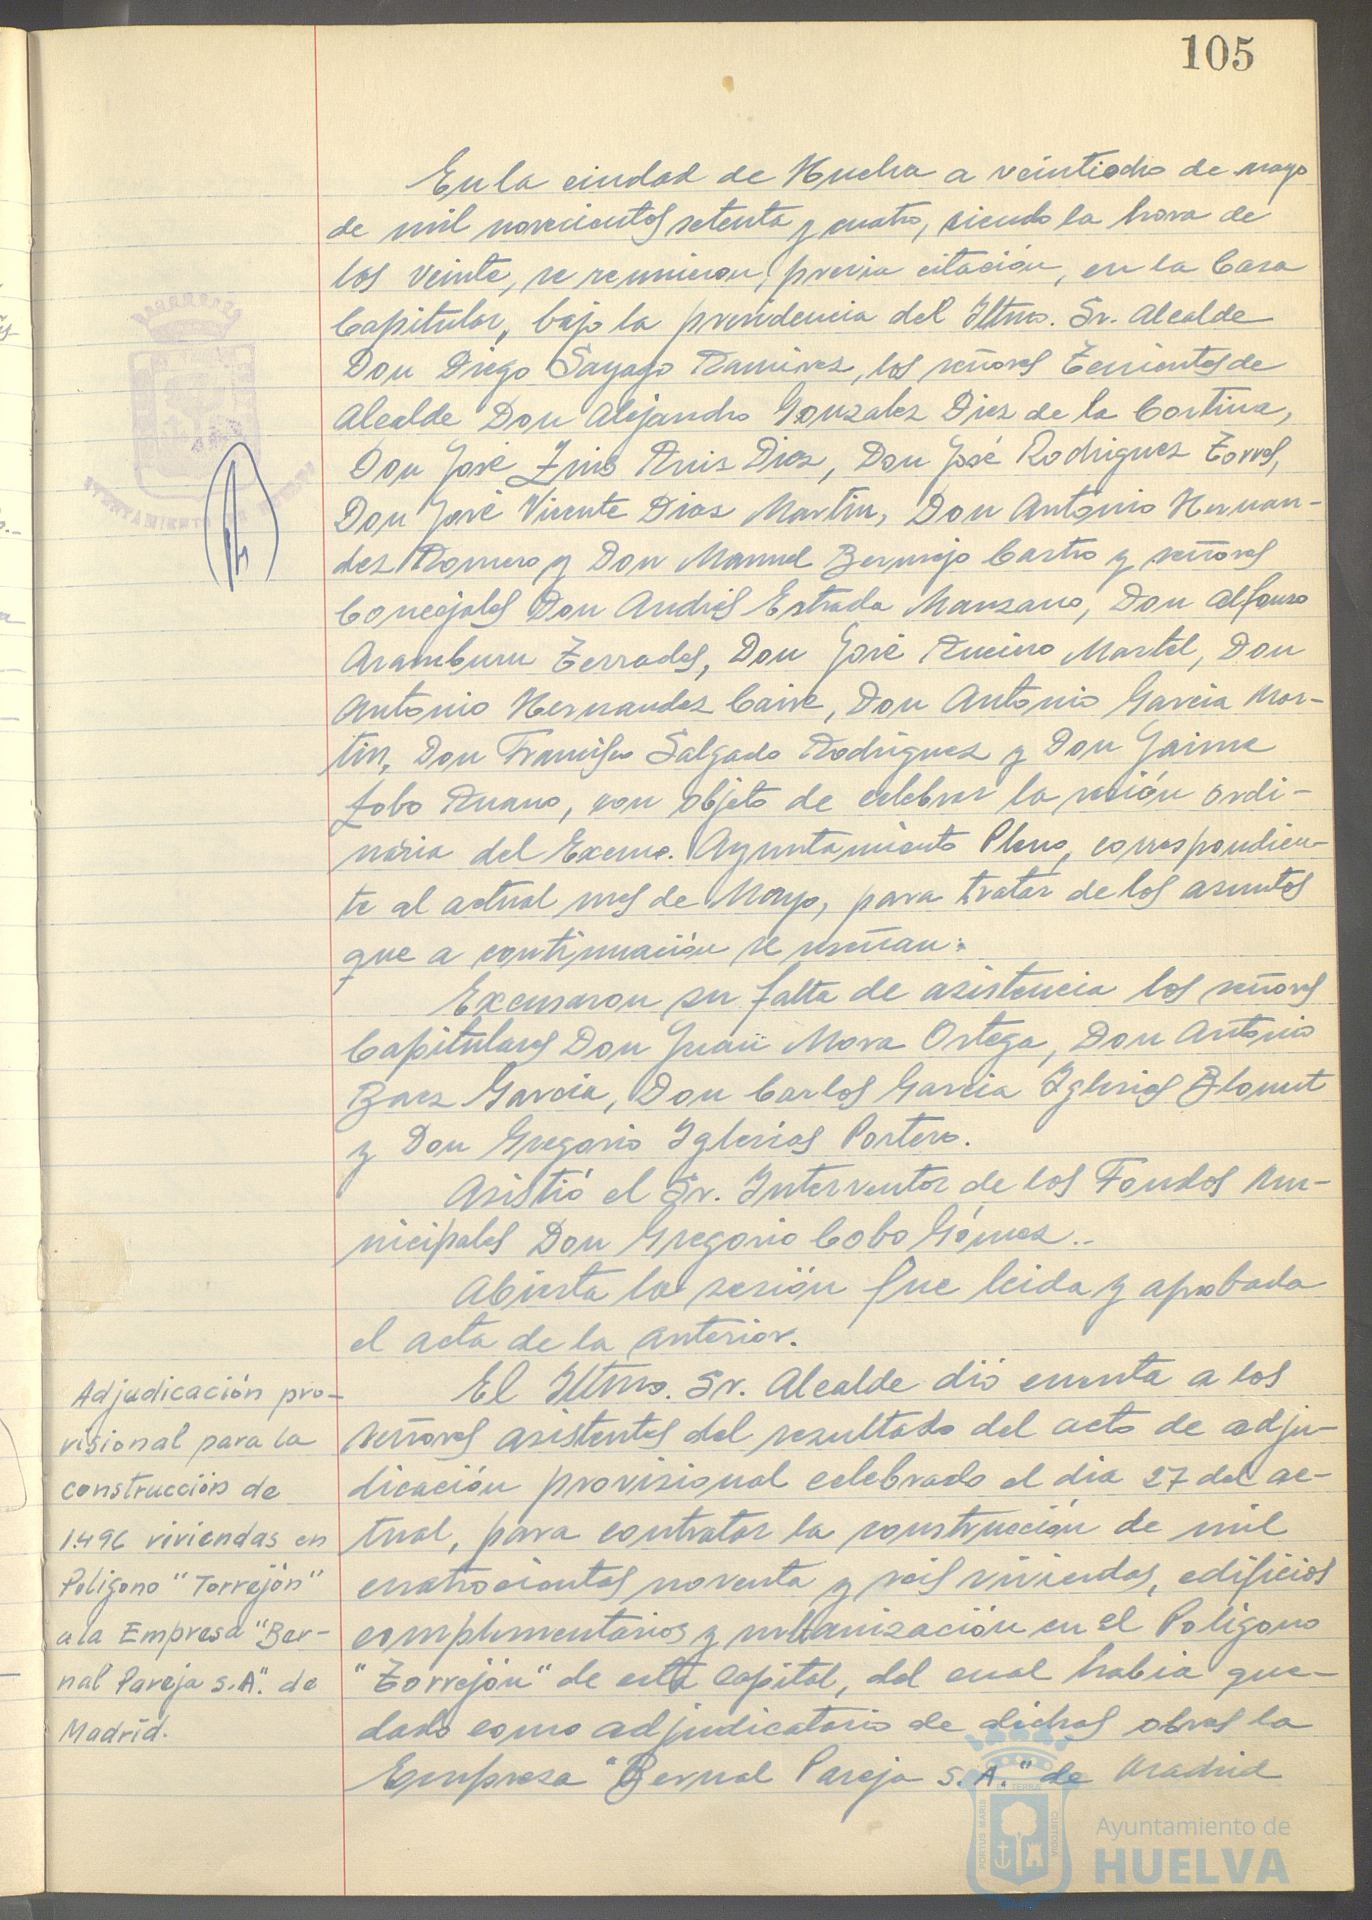 105
En la ciudad de Huelva a veintiocho de mayo
de mil novecientos setenta y cuatro, siendo la hora de
las veinte, se reunieron, previa citación, en la Casa
Capitular, bajo la presidencia del Iltmo. Sr. Alcalde
Don Diego Sayago Ramirez, los señores Tenientes de
Alcalde Don Alejandro Gonzalez Diez de la Cortina,
Don José Luis Ruiz Diaz, Don José Rodriguez Torres,
Don José Vicente Diaz Martin, Don Antonio Hernan-
dez Romero y Don Manuel Bermejo Castro y señores
Concejales Don Andrés Estrada Manzano, Don Alfonso
Aramburu Terrades, Don José Anciro Martel, Don
Antonio Hernandez Caire, Don Antonio Garcia Mar-
tin, Don Francisco Salgado Rodriguez y Don Jaime
Lobo Ruano, con objeto de celebrar la sesión ordi-
naria del Excmo. Ayuntamiento Pleno, correspondien-
te al actual mes de Mayo, para tratar de los asuntos
que a continuación se reseñan:
Excusaron su falta de asistencia los señores
Capitulares Don Juan Mora Ortega, Don Antonio
Baez Garcia, Don Carlos Garcia Iglesias
y Don Gregorio Iglesias Portero.
Asistió el Sr. Interventor de los Fondos Mu-
nicipales Don Gregorio Cobo Gómez..
Abierta la sesión fue leida y aprobada
el acta de la anterior.
Adjudicación pro-
visional para la
construcción de
1.496 viviendas en
Poligono "Torrejón"
a la Empresa "Ber-
nal Pareja S.A." de
Madrid.
El Iltmo. Sr. Alcalde dió cuenta a los
señores asistentes del resultado del acto de adju-
dicación provisional celebrado el dia 27 del ac-
tual, para contratar la construcción de mil
cuatrocientas noventa y seis viviendas, edificios
complementarios y urbanización en el Poligono
"Torrejón" de esta Capital, del cual habia que-
dado como adjudicatario de dichas obras la
Empresa "Bernal Pareja S.A." de Madrid
AYUNTAMIENTO DE HUELVA
PORTUS MARIS ET TERRAE CUSTODIA
Ayuntamiento de
HUELVA